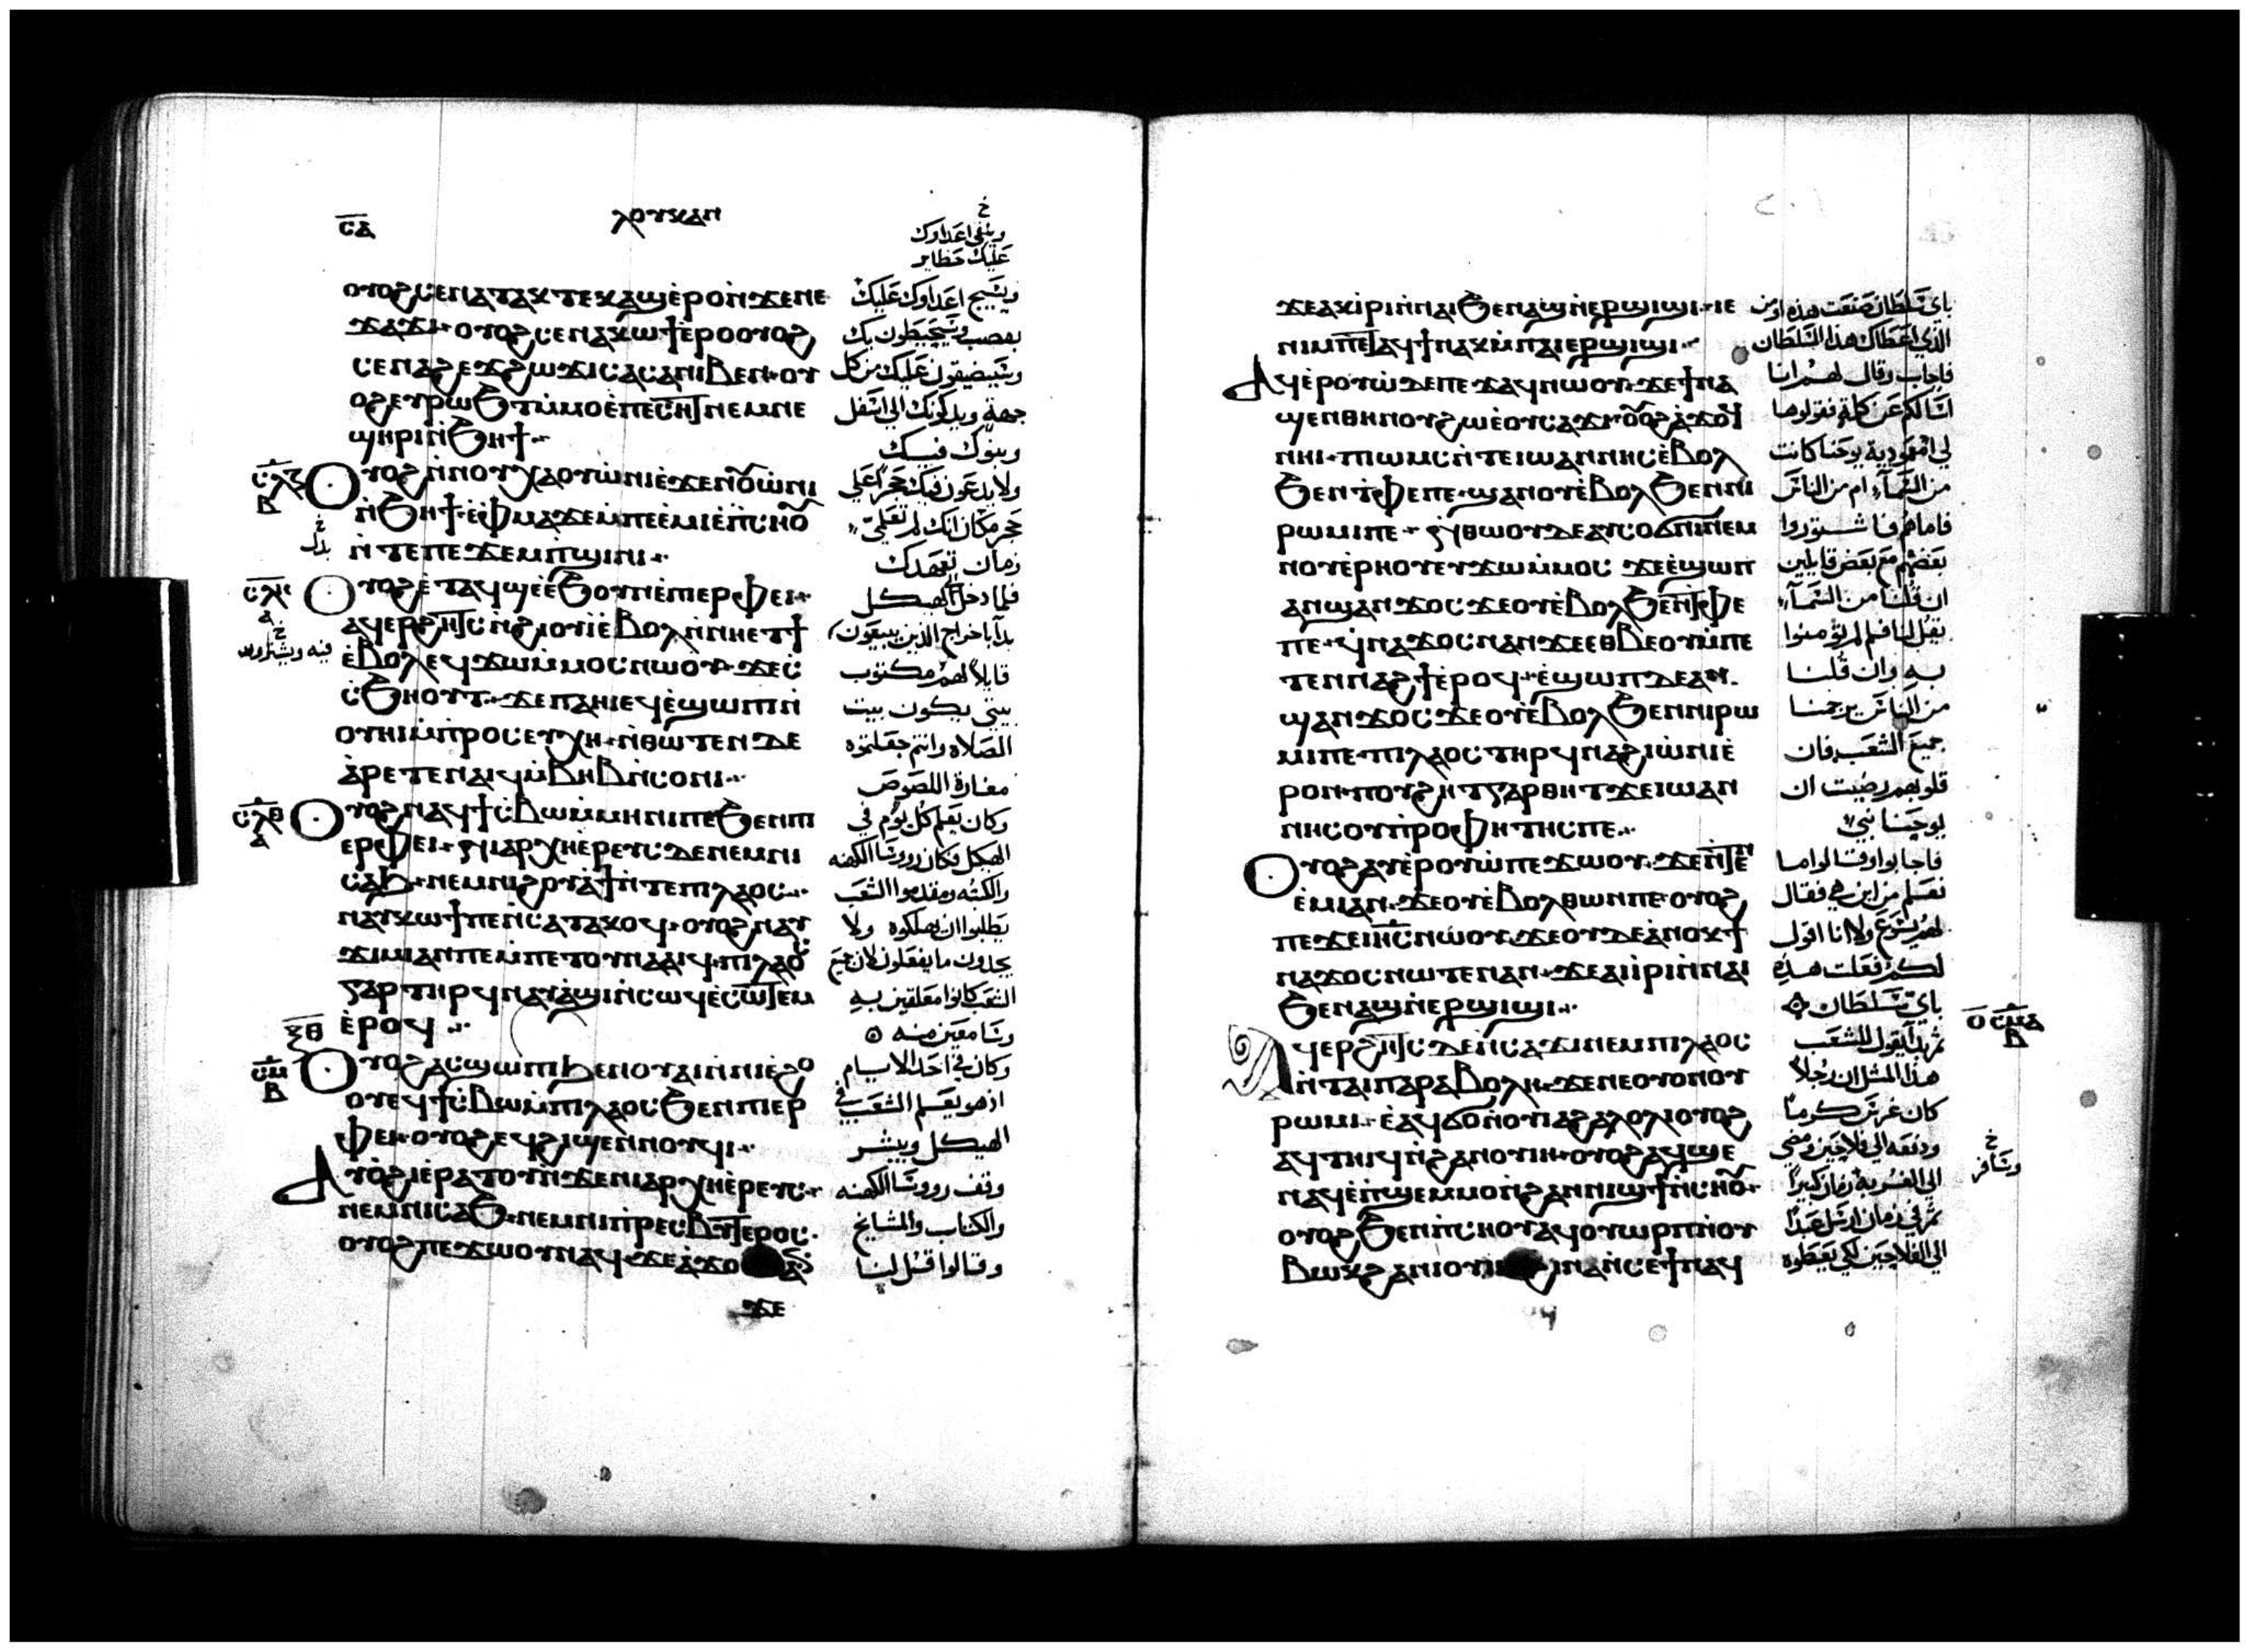 ⲥⲁ
ⲗⲟⲩⲕⲁⲛ
خ
وينفي اعداوك
عليك حظاير
ⲟⲩⲟϩ ⲥⲉⲛⲁⲧⲁⲕⲧⲉ ⲕⲁϣ ⲉ̀ⲣⲟ ⲛ̀ϫⲉ ⲛⲉ
ϫⲁϫⲓ ⲟⲩⲟϩ ⲥⲉⲛⲁⲕⲱϯ ⲉ̀ⲣⲟ ⲟⲩⲟϩ
ⲥⲉⲛⲁϩⲉϫϩⲱϫⲓ ⲥⲁⲥⲁ ⲛⲓⲃⲉⲛ ⲟⲩ
ⲟϩ ⲉⲩⲣⲱϧⲧ ⲙ̀ⲙⲟ ⲉ̀ⲡⲉⲥⲏⲧ ⲛⲉⲙ ⲛⲉ
ϣⲏⲣⲓ ⲛ̀ϧⲏϯ
ⲟⲩⲟϩ ⲛ̀ⲛⲟⲩⲭⲁ ⲟⲩⲱ̀ⲛⲓ ⲉ̀ϫⲉⲛ ⲟⲩⲱ̀ⲛⲓ
ⲛ̀ϧⲏϯ ⲉ̀ⲫⲙⲁ ϫⲉ ⲙ̀ⲡⲉⲉ̀ⲙⲓ ⲉ̀ⲡⲥⲏⲟⲩ
ⲛ̀ⲧⲉ ⲡⲉϫⲉⲙⲡϣⲓⲛⲓ
ⲟⲩⲟϩ ⲉ̀ⲧⲁϥϣⲉ ⲉ̀ϧⲟⲩⲛ ⲉ̀ⲡⲓⲉⲣⲫⲉⲓ
ⲁϥⲉⲣϩⲏⲧⲥ ⲛ̀ϩⲓⲟⲩⲓ̀ ⲉ̀ⲃⲟⲗ ⲛ̀ⲛⲏⲉⲧϯ
ⲉ̀ⲃⲟⲗ ⲉϥϫⲱ ⲙ̀ⲙⲟⲥ ⲛⲱⲟⲩ ϫⲉ ⲥ
ⲥ̀ϧⲏⲟⲩⲧ ϫⲉ ⲡⲁⲏⲓ ⲉϥⲉ̀ϣⲱⲡⲓ ⲛ̀
ⲟⲩⲏⲓ ⲙ̀ⲡⲣⲟⲥⲉⲩⲭⲏ ⲛ̀ⲑⲱⲧⲉⲛ ⲇⲉ
ⲁ̀ⲣⲉⲧⲉⲛⲁⲓϥ ⲙ̀ⲃⲏⲃ ⲛ̀ⲥⲟⲛⲓ
ⲟⲩⲟϩ ⲛⲁϥϯⲥ̀ⲃⲱ ⲙ̀ⲙⲏⲛⲓ ⲡⲉ ϧⲉⲛ ⲡⲓ
ⲉⲣⲫⲉⲓ ⲛⲓⲁⲣⲭⲏⲉ̀ⲣⲉⲩⲥ ⲇⲉ ⲛⲉⲙ ⲛⲓ
ⲥⲁϧ ⲛⲉⲙ ⲛⲓϩⲟⲩⲁϯ ⲛ̀ⲧⲉ ⲡⲓⲗⲁⲟⲥ
ⲛⲁⲩⲕⲱϯ ⲡⲉ ⲛ̀ⲥⲁ ⲧⲁⲕⲟϥ ⲟⲩⲟϩ ⲛⲁⲩ
ϫⲓⲙⲓ ⲁⲛ ⲡⲉ ⲙ̀ⲡⲉⲧⲟⲩⲛⲁⲁⲓϥ ⲡⲓⲗⲁⲟⲥ
ⲅⲁⲣ ⲧⲏⲣϥ ⲛⲁⲩⲁ̀ϣⲓ ⲛ̀ⲥⲱϥ ⲉ̀ⲥⲱⲧⲉⲙ
ⲉ̀ⲣⲟϥ
ⲟⲩⲟϩ ⲁⲥϣⲱⲡⲓ ϧⲉⲛ ⲟⲩⲁⲓ ⲛ̀ⲛⲓⲉ̀ϩⲟ
ⲟⲩ ⲉϥϯⲥ̀ⲃⲱ ⲙ̀ⲡⲓⲗⲁⲟⲥ ϧⲉⲛ ⲡⲓⲉⲣ
ⲫⲉⲓ ⲟⲩⲟϩ ⲉϥϩⲓϣⲉⲛⲛⲟⲩϥⲓ
ⲁⲩⲟ̀ϩⲓ ⲉ̀ⲣⲁⲧⲟⲩ ⲛ̀ϫⲉ ⲛⲓⲁⲣⲭⲏⲉ̀ⲣⲉⲩⲥ
ⲛⲉⲙ ⲛⲓⲥⲁϧ ⲛⲉⲙ ⲛⲓⲡⲣⲉⲥⲃⲩⲧⲉⲣⲟⲥ
ⲟⲩⲟϩ ⲡⲉϫⲱⲟⲩ ⲛⲁϥ ϫⲉ ⲁ̀ϫⲟ
ϫⲉ
ويهيج اعداوك عليك
بغصب ويحيطون بك
ويضيقون عليك من كل
جهة ويدكونك الي اسفل
وبنوك فيك
ولا يدعون فيك حجرا علي
حجر مكان انك لم تعلمي
زمان تعهدك
فلما دخل الهيكل
بدا باخراج الذين يبيعون
قايلا لهم مكتوب
بيتي يكون بيت
الصلاه وانتم جعلتموه
مغارة اللصوص
وكان يعلم كل يوم في
الهيكل وكان روسا الكهنه
والكتبه ومقدموا الشعب
يطلبوا ان يهلكوه ولا
يجدون ما يفعلون لان جميع
الشعب كانوا معلقين به
وسامعين منه
وكان في احد الايام
اذ هو يعلم الشعب في
الهيكل ويبشر
وقف رووسا الكهنه
والكتاب والمشايخ
وقالوا قل لنا
ϫⲉ ⲁⲕⲓ̀ⲣⲓ ⲛ̀ⲛⲁⲓ ϧⲉⲛ ⲁϣ ⲛ̀ⲉⲣϣⲓϣⲓ ⲓⲉ
ⲛⲓⲙ ⲡⲉⲧⲁϥϯ ⲛⲁⲕ ⲙ̀ⲡⲁⲓⲉⲣϣⲓϣⲓ
ⲁϥⲉ̀ⲣⲟⲩⲱ̀ ⲇⲉ ⲡⲉϫⲁϥ ⲛⲱⲟⲩ ϫⲉ ϯⲛⲁ
ϣⲉⲛ ⲑⲏⲛⲟⲩ ϩⲱ ⲉ̀ⲟⲩⲥⲁϫⲓ ⲟⲩⲟϩ ⲁ̀ϫⲟⲥ
ⲛⲏⲓ ⲡⲓⲱⲙⲥ ⲛ̀ⲧⲉ ⲓⲱⲁⲛⲛⲏⲥ ⲉ̀ⲃⲟⲗ
ϧⲉⲛ ⲧ̀ⲫⲉ ⲡⲉ ϣⲁⲛ ⲟⲩⲉ̀ⲃⲟⲗ ϧⲉⲛ ⲛⲓ
ⲣⲱⲙⲓ ⲡⲉ ⲛ̀ⲑⲱⲟⲩ ⲇⲉ ⲁⲩⲥⲟϭⲛⲓ ⲛⲉⲙ
ⲛⲟⲩⲉ̀ⲣⲏⲟⲩ ⲉⲩϫⲱ ⲙ̀ⲙⲟⲥ ϫⲉ ⲉ̀ϣⲱⲡ
ⲁⲛϣⲁⲛϫⲟⲥ ϫⲉ ⲟⲩⲉ̀ⲃⲟⲗ ϧⲉⲛ ⲧⲫⲉ
ⲡⲉ ϥⲛⲁϫⲟⲥ ⲛⲁⲛ ϫⲉ ⲉⲑⲃⲉ ⲟⲩ ⲙ̀ⲡⲉ
ⲧⲉⲛⲛⲁϩϯ ⲉ̀ⲣⲟϥ ⲉ̀ϣⲱⲡ ⲇⲉ ⲁⲛ
ϣⲁⲛϫⲟⲥ ϫⲉ ⲟⲩⲉ̀ⲃⲟⲗ ϧⲉⲛ ⲛⲓⲣⲱ
ⲙⲓ ⲡⲉ ⲡⲓⲗⲁⲟⲥ ⲧⲏⲣϥ ⲛⲁϩⲓⲱ̀ⲛⲓ ⲉ̀
ⲣⲟⲛ ⲡⲟⲩϩⲏⲧ ⲅⲁⲣ ⲑⲏⲧ ϫⲉ ⲓⲱⲁⲛ
ⲛⲏⲥ ⲟⲩⲡⲣⲟⲫⲏⲧⲏⲥ ⲡⲉ
ⲟⲩⲟϩ ⲁⲩⲉ̀ⲣⲟⲩⲱ̀ ⲡⲉϫⲱⲟⲩ ϫⲉ ⲛ̀ⲧⲉⲛ
ⲉ̀ⲙⲓ ⲁⲛ ϫⲉ ⲟⲩⲉ̀ⲃⲟⲗ ⲑⲱⲛ ⲡⲉ ⲟⲩⲟϩ
ⲡⲉϫⲉ ⲓⲏⲥ ⲛⲱⲟⲩ ϫⲉ ⲟⲩⲇⲉ ⲁ̀ⲛⲟⲕ ϯ
ⲛⲁϫⲟⲥ ⲛⲱⲧⲉⲛ ⲁⲛ ϫⲉ ⲁⲓⲓ̀ⲣⲓ ⲛ̀ⲛⲁⲓ
ϧⲉⲛ ⲁϣ ⲛ̀ⲉⲣϣⲓϣⲓ
ⲁϥⲉⲣϩⲏⲧⲥ ⲇⲉ ⲛ̀ⲥⲁϫⲓ ⲛⲉⲙ ⲡⲓⲗⲁⲟⲥ
ⲛ̀ⲧⲁⲓⲡⲁⲣⲁⲃⲟⲗⲏ ϫⲉ ⲛⲉ ⲟⲩⲟⲛ ⲟⲩ
ⲣⲱⲙⲓ ⲉ̀ⲁϥϭⲟ ⲛ̀ⲟⲩⲓⲁϩⲁⲗⲟⲗⲓ ⲟⲩⲟϩ
ⲁϥⲧⲏⲓϥ ⲛ̀ϩⲁⲛⲟⲩⲓⲏ ⲟⲩⲟϩ ⲁϥϣⲉ
ⲛⲁϥ ⲉ̀ⲡϣⲉⲙⲙⲟ ⲛ̀ϩⲁⲛⲛⲓϣϯ ⲛ̀ⲥⲏⲟⲩ
ⲟⲩⲟϩ ϧⲉⲛ ⲡⲥⲏⲟⲩ ⲁϥⲟⲩⲱⲣⲡ ⲛ̀ⲟⲩ
ⲃⲱⲕ ϩⲁ ⲛⲓⲟⲩⲓⲏ ϩⲓⲛⲁ ⲛ̀ⲥⲉϯ ⲛⲁϥ
باي سلطان صنعت هذه او من
الذي اعطاك هذا السلطان
فاجاب وقال لهم انا
اسالكم عن كلمة فقولوها
لي امعمودية يوحنا كانت
من السماء ام من الناس
فاما هم فاشتوروا
بعضهم مع بعض قايلين
ان قلنا من السماء
يقل لنا فلم لم تؤمنوا
به وان قلنا
من الناس يرجمنا
جميع الشعب فان
قلوبهم رضيت ان
يوحنا نبي
فاجابوا وقالوا ما
نعلم من اين هي فقال
لهم يسوع ولا انا اقول
لكم فعلت هذه
باي سلطان
ثم بدا يقول للشعب
هذا المثل ان رجلا
كان غرس كرما
ودفعه الي فلاحين ومضي
الي الغربة زمان كبيرا
ثم في زمان ارسل عبدا
الي الفلاحين لكي يعطوه
خ
وسافر